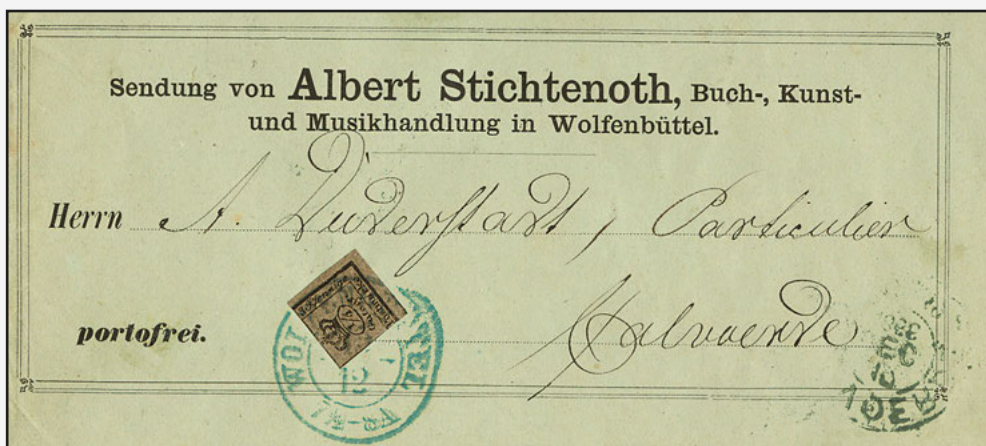 Sendung von Albert Stichtenoth, Buch-, Kunst-
und Musikhandlung in Wolfenbüttel.
Herrn A. Duderstadt, Particulier
portofrei.
Calvoerde
WOL TTEL
12